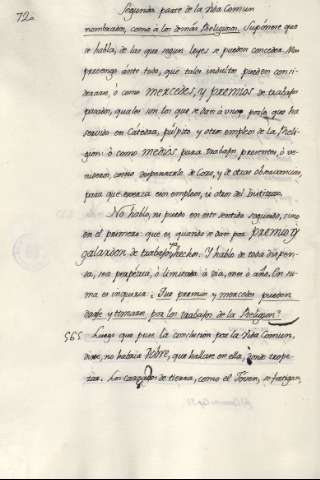 72.
Segunda parte de la Vida Comun
nombrados, como à los demàs Religiosos. Supónese que
se habla, de las que segun leyes se pueden conceder. Mas
prevengo ànte todo, que tales indultos pueden consi-
derarse, ò como mercedes, y premios de trabajo
pasado, quales son los que se dan à unos por lo que han
servido en Càtedra, pulpito y otros empleos de la Reli-
gion: ò como medios para trabajo presente, ò ve-
nidero, como desocuparle de Coro, y de otras observancias,
para que exerza esos empleos, ù otros del Instituto.
No hablo, ni puedo en este sentido segundo, sino
en el primero: que es, quando se dan por premio, y
galardon de trabajos yà hechos. Y hablo de toda dispen-
sa, sea perpetua, ò limitada à dia, mes ò año. En su-
ma es inquirir: Que premios y mercedes pueden
darse y tomarse por los trabajos de la Religion?
595 Luego que puse la conclusion por la Vida Comun,
dixe, no habia Pobre, que hallase en ella, donde trope-
zar. Los cargados de tierra, como el Joven, se fatigan,